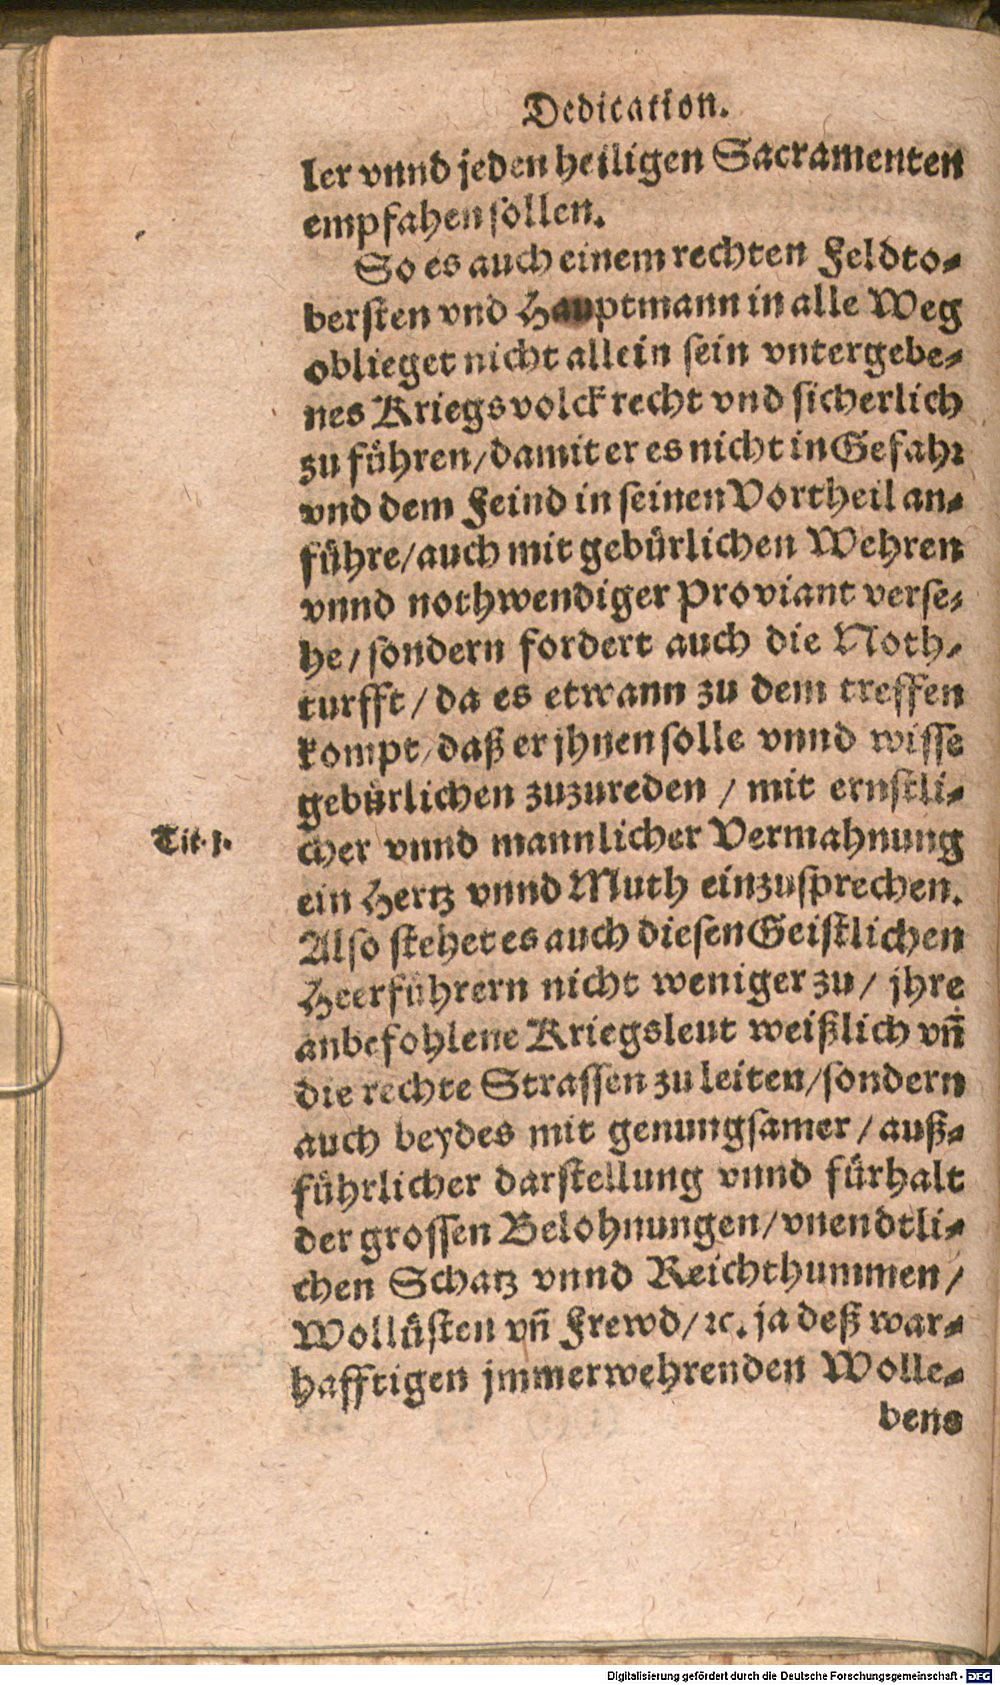 Dedication.
ler vnnd jeden heiligen Sacramenten
empfahen sollen.
So es auch einem rechten Feldto-
bersten vnd Hauptmann in alle Weg
oblieget nicht allein sein vntergebe-
nes Kriegsvolck recht vnd sicherlich
zu führen/damit er es nicht in Gefahr
vnd dem Feind in seinen Vortheil an-
führe/auch mit gebürlichen Wehren
vnnd nothwendiger Proviant verse-
he/sondern fordert auch die Noth-
turfft/da es etwann zu dem treffen
kompt/daß er jhnen solle vnnd wisse
gebürlichen zuzureden/mit ernstli-
Tit. 1.
cher vnnd mannlicher Vermahnung
ein Hertz vnnd Muth einzusprechen.
Also stehet es auch diesen Geistlichen
Heerführern nicht weniger zu/jhre
anbefohlene Kriegsleut weißlich vñ
die rechte Strassen zu leiten/sondern
auch beydes mit genungsamer/auß-
führlicher darstellung vnnd fürhalt
der grossen Belohnungen/vnendtli-
chen Schatz vnnd Reichthummen/
Wollüsten vñ Frewd/ꝛc. ja deß war-
hafftigen jmmerwehrenden Wolle-
bens
Digitalisierung gefördert durch die Deutsche Forschungsgemeinschaft - DFG